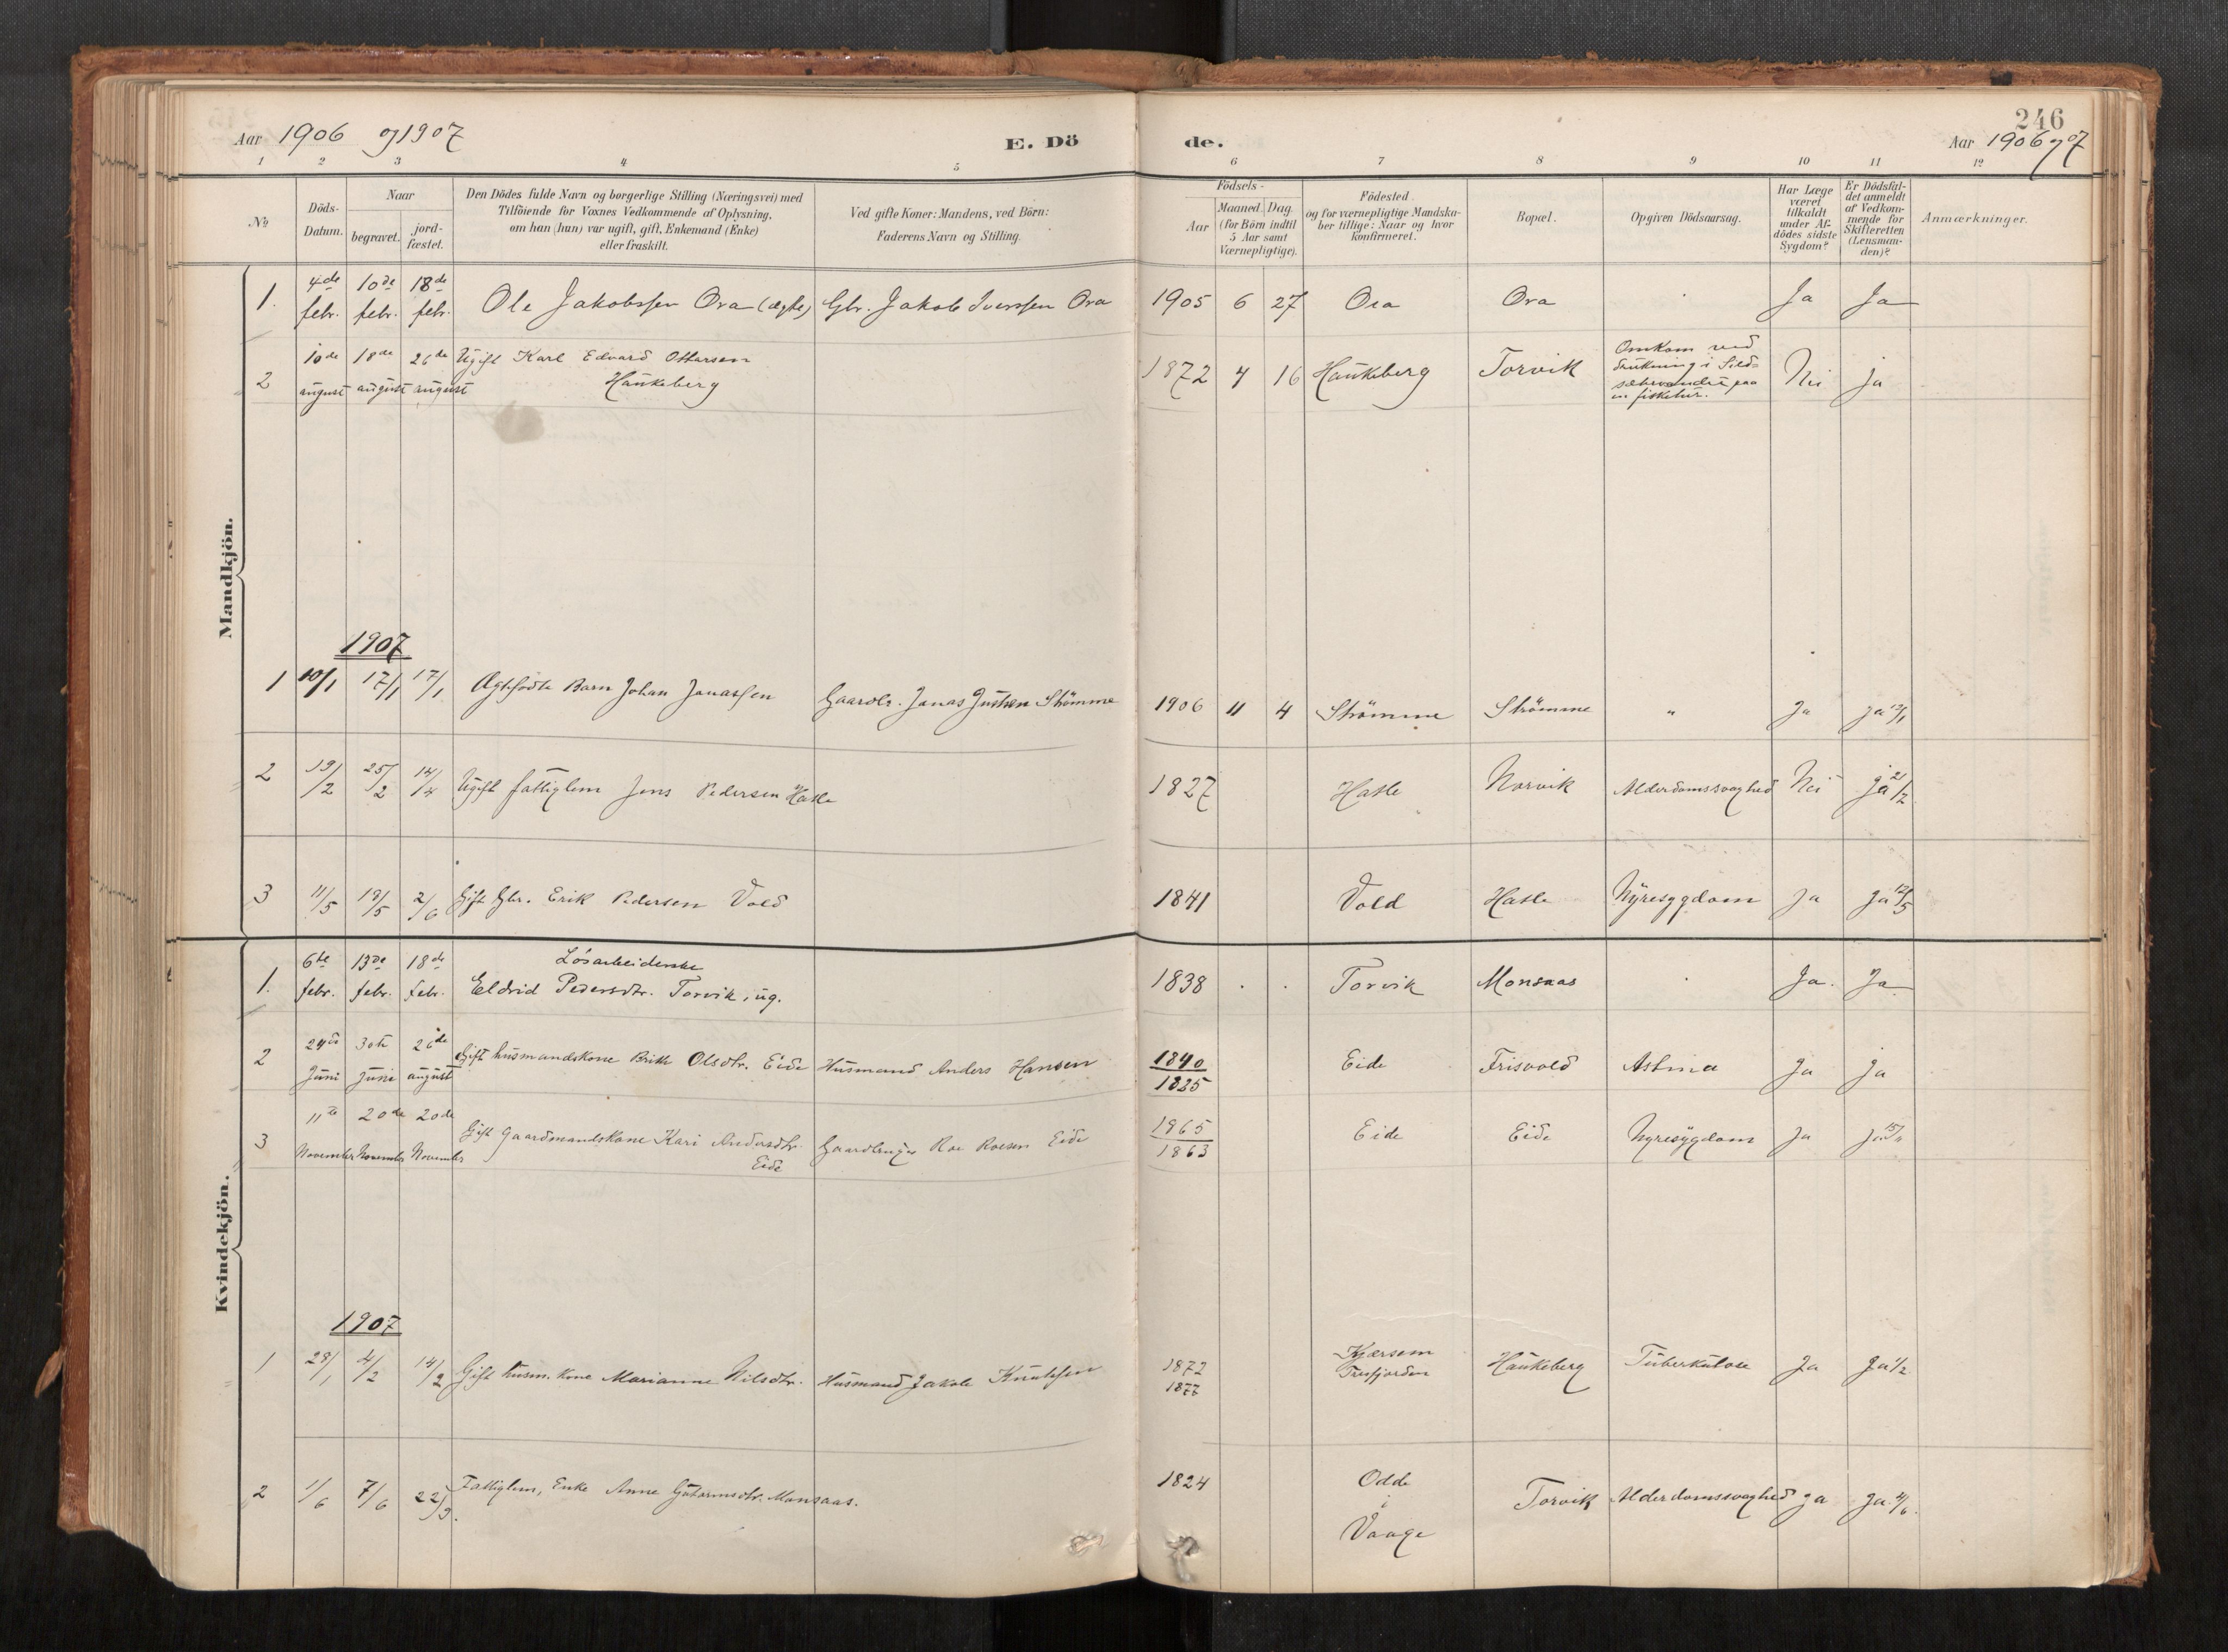 246
Aar 1906 og 1907 E. Dö de. Aar 1906 og 07
1 2 3 4 5 6 7 8 9 10 11 12
No
Döds-
Datum.
Naar
begravet.
jord-
fæstet.
Den Dödes fulde Navn og borgerlige Stilling (Næringsvei) med
Tilföiende for Voxnes Vedkommende af Oplysning,
om han (hun) var ugift, gift, Enkemand (Enke)
eller fraskilt.
Ved gifte Koner: Mandens, ved Börn:
Faderens Navn og Stilling.
Födsels-
Aar
Maaned. Dag.
(for Börn indtil
5 Aar samt
Værnepligtige).
Födested
og for værnepligtige Mandska-
ber tillige: Naar og hvor
konfirmeret.
Bopæl.
Opgiven Dödsaarsag.
Har Læge
været
tilkaldt
under Af-
dödes sidste
Sygdom?
Er Dödsfal-
det anmeldt
af Vedkom-
mende for
Skifteretten
(Lensman-
den)?
Anmærkninger.
Mandkjön.
1. 4de febr. 10de febr. 18de febr. Ole Jakobssen Ora (ægte) Gbr. Jakob Iverssen Ora 1905 6 27 Ora Ora Ja Ja
2 10de august 18de august 26de august Ugift Karl Edvard Ottarsen
Haukeberg 1872 4 16 Haukeberg Torvik Omkom ved
Drukning i
paa
en fisketur. Nei ja
1907
1 10/1 17/1 17/1 Ægtefödte Barn Johan Jonassen Gaardbr. Jonas Strömme 1906 11 4 Strömme Strömme " Ja ja 12/1
2 19/2 25/2 14/4 Ugift fattiglem Jens Pedersen Hatle 1827 Hatle Norvik Alderdomssvaghed Nei ja 21/2
3 11/5 19/5 2/6 Gift Gbr. Erik Pedersen Vold 1841 Vold Hatle Nyresygdom ja ja 12/5
Kvindekjön.
1. 6te febr. 13de febr. 18de febr. Lösarbeiderske
Eldrid Pedersdtr. Torvik, ug. 1838 . . Torvik Monsaas Ja. Ja
2 24de Juni 30te Juni 26de august Gift husmandskone Brite Olsdtr. Eide Husmand Anders Hansen 1840
1825 Eide Frisvold Astma Ja ja
3 11te November 20de November 20de November Gift Gaardmandskone Kari Andersdtr.
Eide Gaardbruger Roe Roesen Eide 1865
1863 Eide Eide Nyresygdom ja ja 15/11
1907
1 28/1 4/2 14/2 Gift husm. kone Marianne Nilsdtr. Husmand Jakob Knutssen 1872
1877 Kjersem
Tresfjorden Haukeberg Tuberkulose Ja Ja 1/2
2 1/6 7/6 22/9. Fattiglem, Enke Anne Gutormsdtr. Monsaas. 1824 Odde
i
Vaage Torvik Alderdomssvaghed ja ja 4/6.